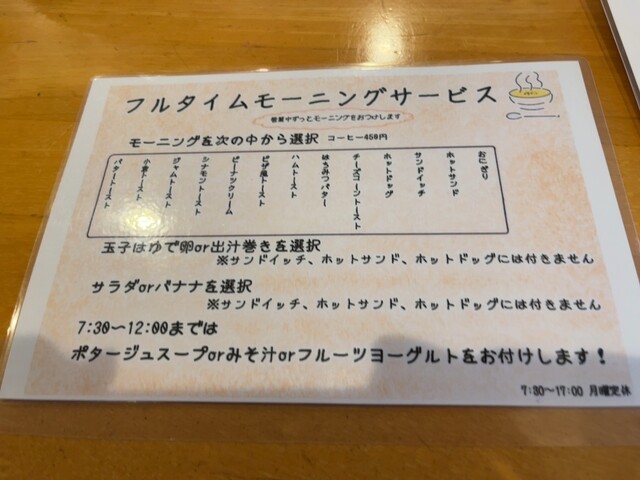 フルタイムモーニングサービス
営業中ずっとモーニングをおつけします
モーニングを次の中から選択 コーヒー450円
おにぎり
ホットサンド
サンドイッチ
ホットドッグ
チーズコーントースト
はちみつバター
ハムトースト
ピザ風トースト
ピーナックリーム
シナモントースト
ジャムトースト
小倉トースト
バタートースト
玉子はゆで卵or出汁巻きを選択
※サンドイッチ、ホットサンド、ホットドッグには付きません
サラダorバナナを選択
※サンドイッチ、ホットサンド、ホットドッグには付きません
7:30〜12:00までは
ポタージュスープorみそ汁orフルーツヨーグルトをお付けします！
7:30〜17:00 月曜定休